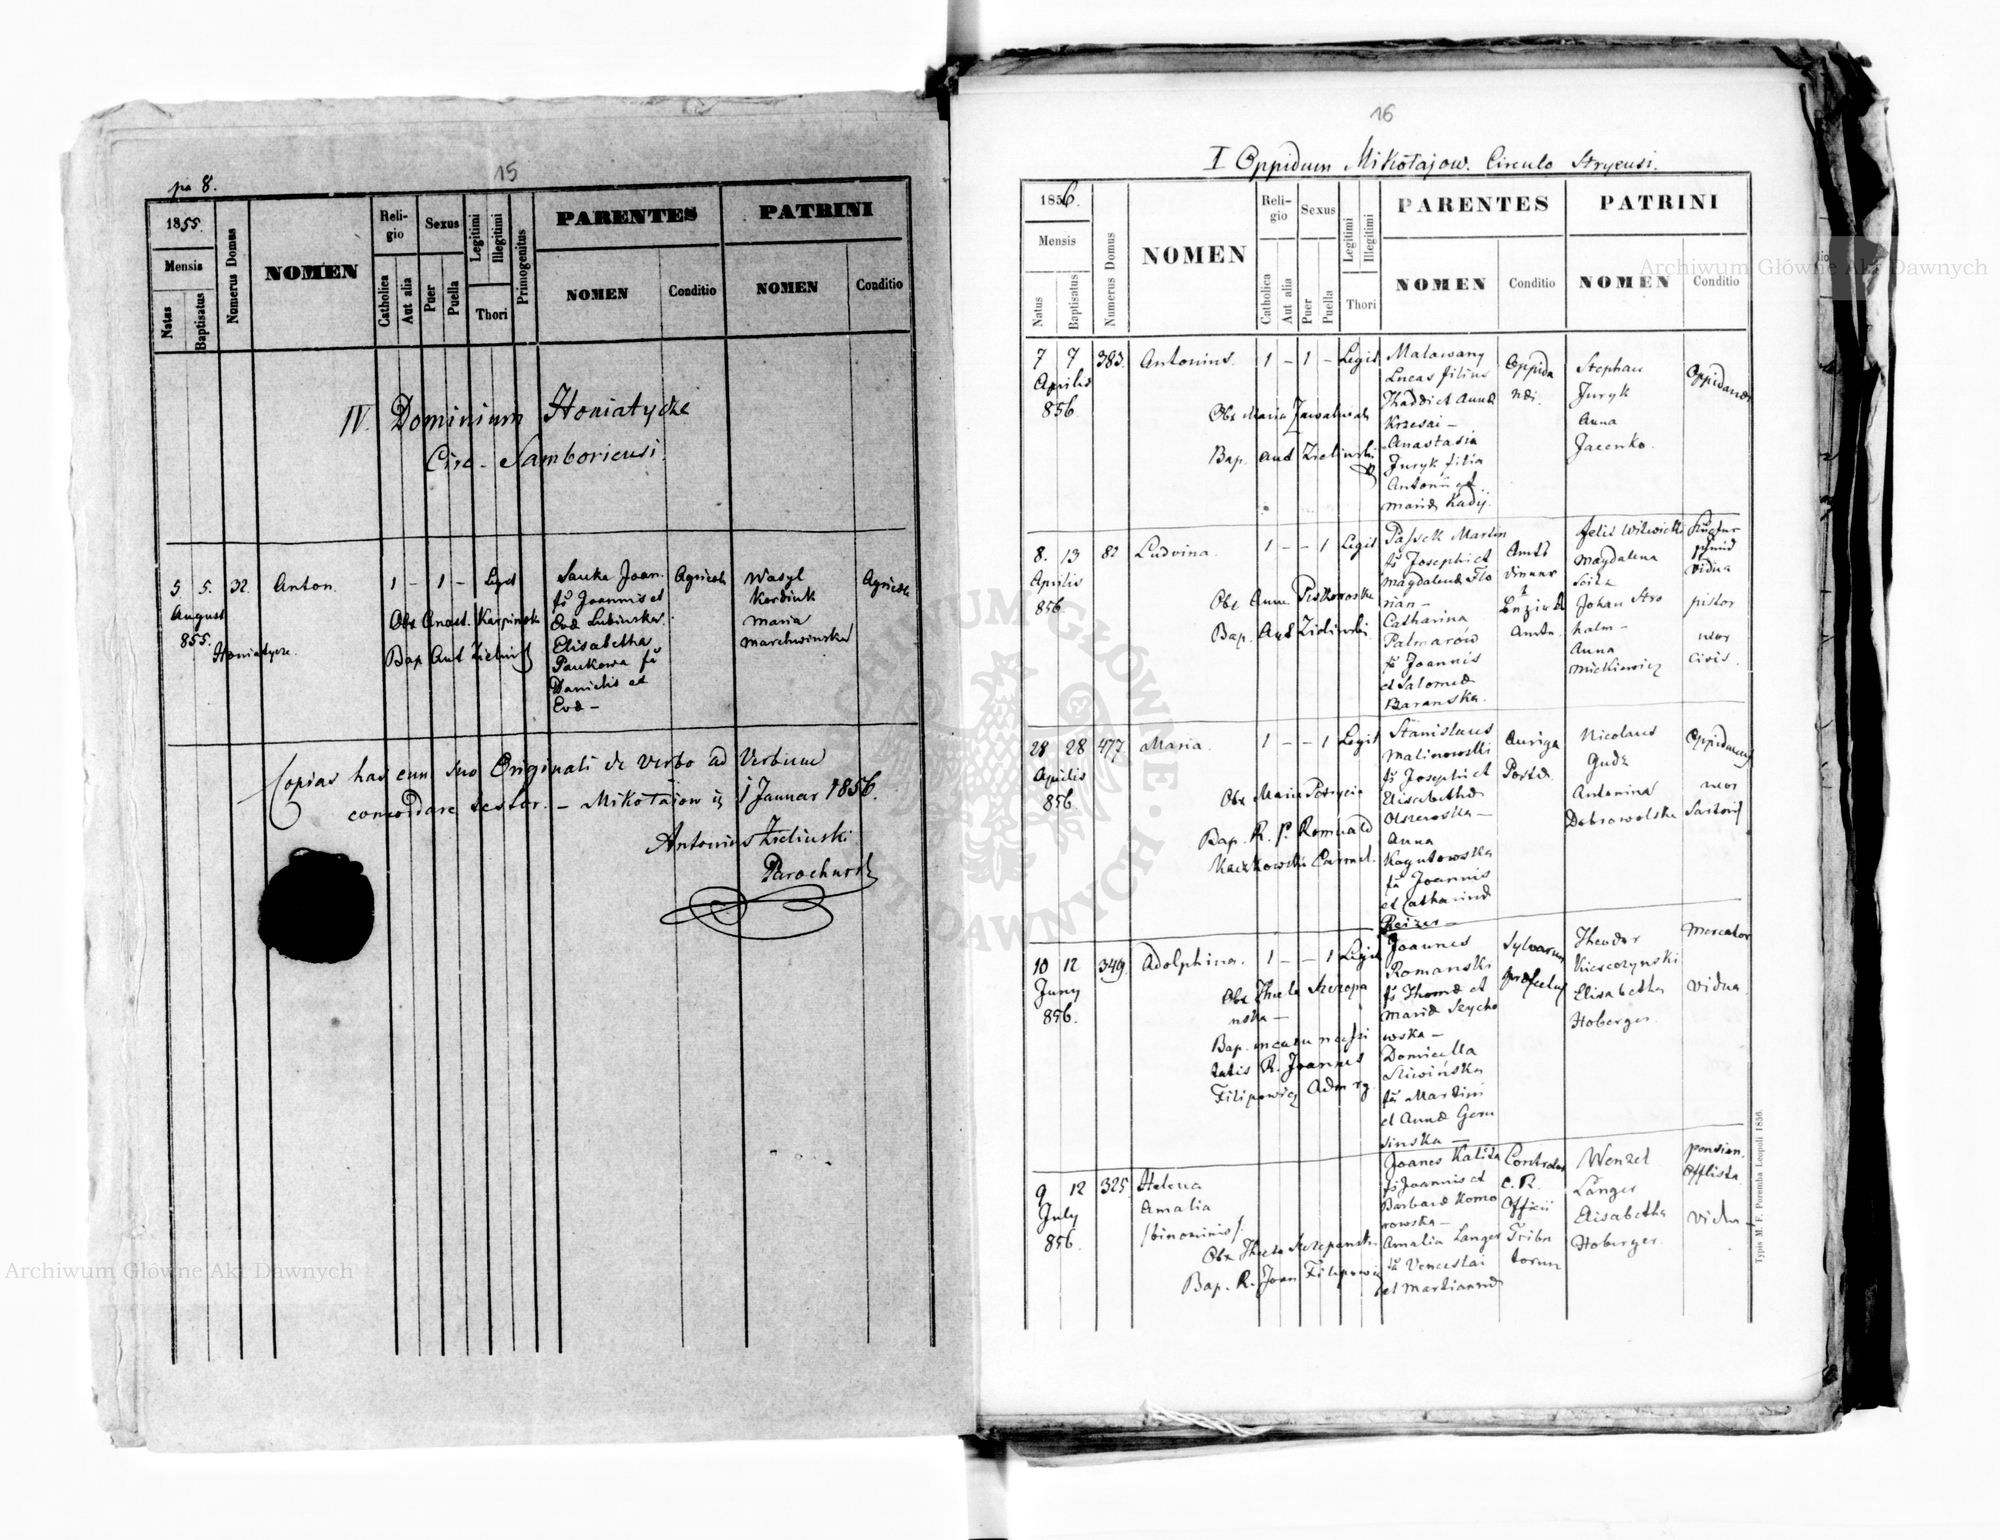 15
pa 8.
1855.
Mensis
Natus
Baptisatus
Numerus Domus
NOMEN
Reli-
gio
Catholica
Aut alia
Sexus
Puer
Puella
Legitimi
Illegitimi
Thori
Primogenitus
PARENTES
NOMEN
Conditio
PATRINI
NOMEN
Conditio
IV. Dominium Honiatycze
Circ. Samboriensi.
5 5. 32. Anton. 1 - 1 -
August
855.
Honiatycze.
Obs Anast. Karpinska
Bap Ant Zielinski
Sauka Joan.
fs Joannis et
Evae Lubinska.
Elisabetha
Paukowa fa
Danielis et
Evae -
Agricola
Wasyl
Kordiuk
Maria
Marchwinska
Agricola
Copias has cum suo Originali de Verbo ad Verbum
concordare testor. - Mikołajow 1 Januar 1856.
Antonius Zielinski
Parochus
16
I Oppidum Mikołajow. Circulo Stryensi.
1856.
Mensis
Natus
Baptisatus
Numerus Domus
NOMEN
Reli-
gio
Catholica
Aut alia
Sexus
Puer
Puella
Legitimi
Illegitimi
Thori
PARENTES
NOMEN
Conditio
PATRINI
NOMEN
Conditio
7 7 383. Antonius. 1 - 1 - Legit
Aprilis
856.
Obs Maria
Bap. Ant Zielinski
Malowany
Lucas filius
Thaddei et Annae
Krzesai -
Anastasia
Juryk filia
Antonii et
Mariae Kadij.
Oppida
nei.
Stephan
Juryk
Anna
Jacenko.
Oppidanus
8. 13 82 Ludvina. 1 - - 1 Legit
Aprilis
856.
Obs Anna Piskoroska
Bap. Ant Zielinski
Passek Martin
fs Josephi et
Magdalenae Flo
rian -
Catharina
Palmarów
fa Joannis
et Salomeae
Baranska.
Amts
diener
Amtn.
Felix Witwicki
Magdalena
Johan Stro
halm -
Anna
Mickiewicz
vidua
pistor
uxor
civis.
28 28 477. Maria. 1 - - 1 Legit
Aprilis
856.
Obs Maria
Bap. R. P. Romuald
Kaczkowski Carmel.
Stanislaus
Malinowski
fs Josephi et
Elisabethae
Olszewska -
Anna
Kogutowska
fa Joannis
et Catharinae
Reizer -
Auriga
Postae.
Nicolaus
Gudz
Antonina
Dobrowolska
Oppidaneus
uxor
Sartoris
10 12 349. Adolphina. 1 - - 1 Legit
Juny
856.
Obs Thecla Szczepa
nska -
Bap. in casu necessi
tatis R. Joannes
Filipowicz Adm rg.
Joannes
Romanski
fs Thomae et
Mariae Szycho
wska -
Domicella
Sliwińska
fa Martini
et Annae Gem
sinska -
Sylvarum
praefectus
Theodor
Elisabetha
Hoberger.
Mercator
vidua
9 12 325. Helena
July
856.
Amalia
/binominis/.
Obs Thecla Szczepanska
Bap. R. Joan Filipowicz
Joanes Kalita
fs Joannis et
Barbarae Komo
rowska -
Amalia Langer
fa Venceslai
et Mariannae
Controlor
C. R.
Officii
Tribu
torum
Wenzel
Langer
Elisabetha
Hoberger.
pension.
Offlista.
vidua -
Typis M. F. Poremba Leopoli 1856.
Archiwum Główne Akt Dawnych
Archiwum Główne Akt Dawnych
ARCHIWUM GŁÓWNE AKT DAWNYCH